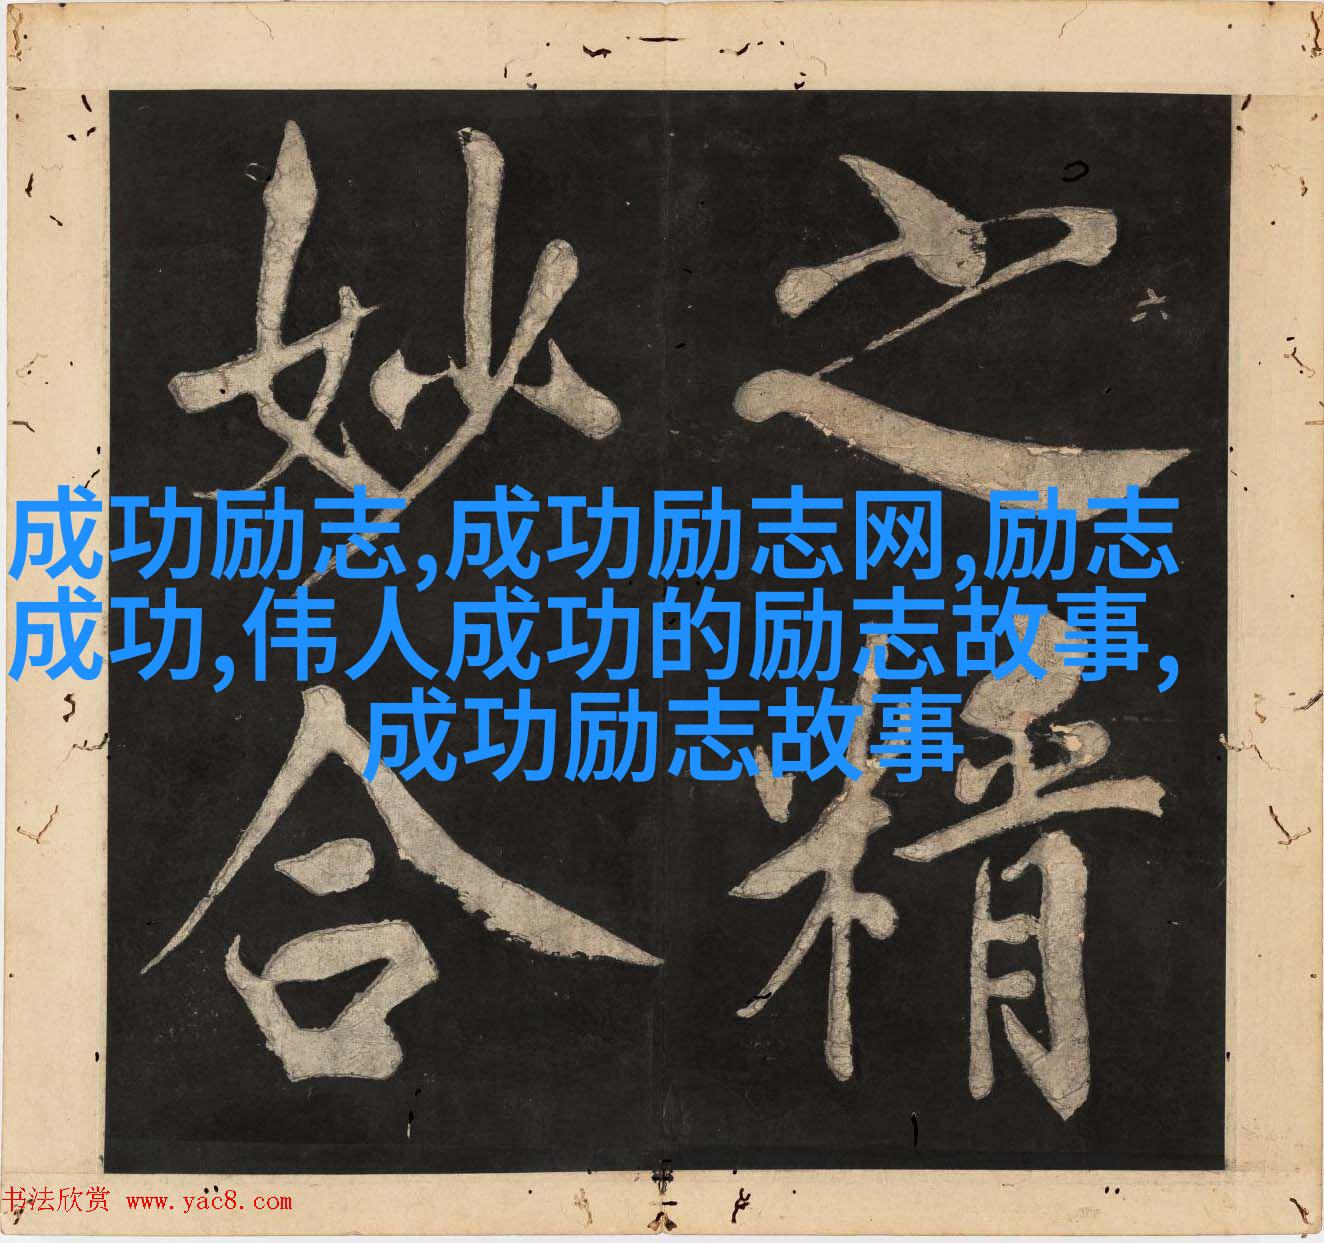 之精
六
妙合
成功励志,成功励志网,励志
成功,伟人成功的励志故事,
成功励志故事
书法欣赏 www.yac8.com